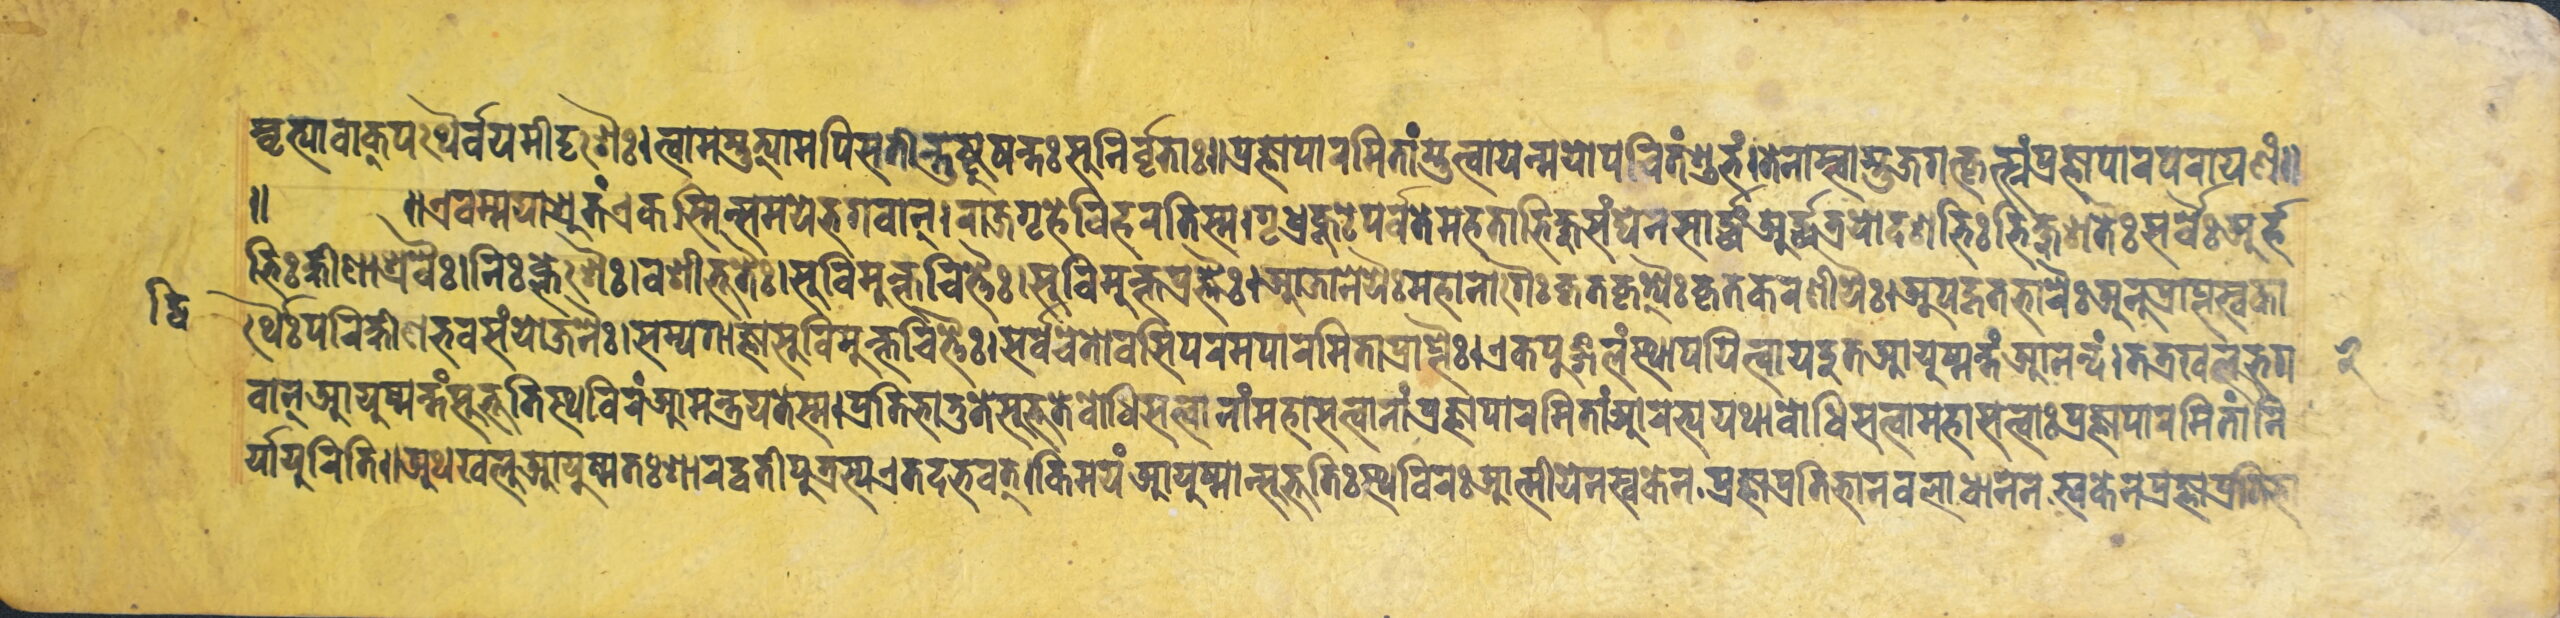 स्कृत्यावाक्पथैर्वयमीदृशैः। त्वामस्तुत्यामपिसतीन्तुष्टूषन्तःसुनिर्वृताः॥ प्रज्ञापारमितांस्तुत्वायन्मयोपचितंशुभं। तेनास्त्वासुजगत्कृत्स्नंप्रज्ञापारपरायणं॥
॥ ॥ एवम्मयाश्रुतंएकस्मिन्समयेभगवान्। राजगृहेविहरतिस्म। गृध्रकूटेपर्वतेमहताभिक्षुसंघेनसार्द्धंअर्द्धत्रयोदशभिःभिक्षुशतैःसर्वैःअर्ह
द्भिःक्षीणाश्रवैः। निःक्लेशैः। वशीभूतैः। सुविमुक्तचित्तैः। सुविमुक्तप्रज्ञैः। आजानेयैःमहानागैःकृतकृत्यैःकृतकरणीयैः। अपहृतभारैःअनुप्राप्तस्वका
द्वि
र्थैःपरिक्षीणभवसंयोजनैः। सम्यगाज्ञासुविमुक्तचित्तैः। सर्वचेतोवसिपरमपारमिताप्राप्तैः। एकपुद्गलंस्थापयित्वायदुतआयुष्मन्तंआनन्दं। तत्रखलुभग
२
वान्आयुष्मन्तंसुभूतिस्थविरंआमन्त्रयतेस्म। प्रतिभातुतेसुभूतेबोधिसत्वानांमहासत्वानांप्रज्ञापारमितांआरभ्ययथाबोधिसत्वामहासत्वाःप्रज्ञापारमितांनि
र्यायुरिति॥ अथखलुआयुष्मतःशारद्वतीपुत्रस्यएतदभवत्। किमयंआयुष्मान्सुभूतिःस्थविरःआत्मीयेनस्वकेन प्रज्ञाप्रतिभानवलाधानेन स्वकेनप्रज्ञाप्रतिभा